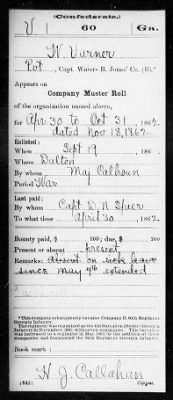 (Confederate.)
V 60 Ga.
W Varner
Pvt, Capt. Waters B. Jones' Co. (B).*
Appears on
Company Muster Roll
of the organization named above,
for Apr 30 to Oct 31, 1862
dated Nov 18, 1862
Enlisted:
When Sept 19, 186
Where Dalton
By whom Maj Calhoun
Period War
Last paid:
By whom Capt D. N. Speer
To what time April 30, 1862
Bounty paid, $ 100; due, $ 100
Present or absent
Remarks: Absent on sick leave
since May 7th extended
*This company subsequently became Company D, 60th Regiment
Georgia Infantry.
Book mark:
H. J. Callahan
(642) Copyist.